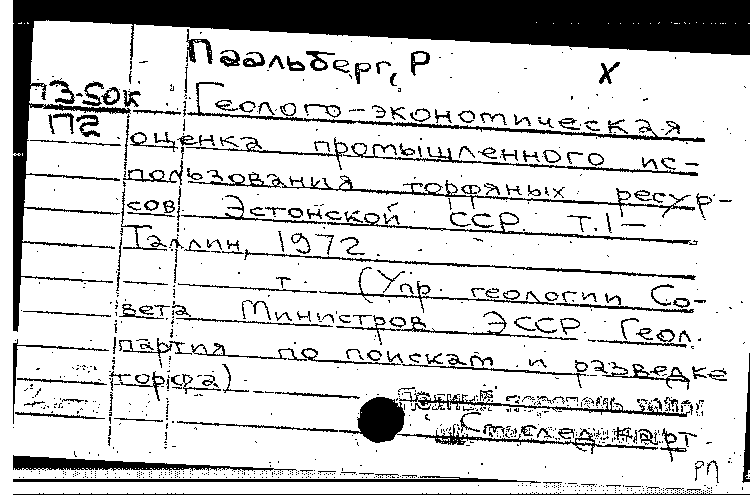 Паальберг, Р
X
П3-50к
П2
Геолого-экономическая
оценка промышленного ис-
пользования торфяных ресур-
сов Эстонской ССР. Т.1-
Таллин, 1972.
т. (Упр. геологии Со-
вета Министров ЭССР. Геол.
партия по поискам и разведке
торфа)
Полный перечень томов
см. послед. карт.
РП